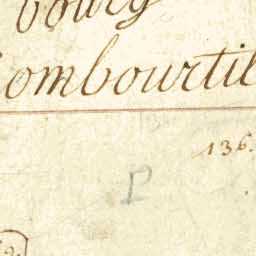 bourg
ombourtil
136.
P